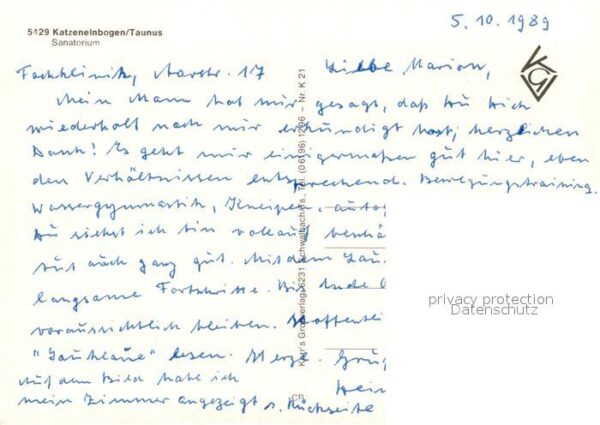 5429 Katzenelnbogen/Taunus
Sanatorium
5.10.1989
Fachklinik, Aarstr. 17
Liebe Marion,
Mein Mann hat mir gesagt, daß Du Dich
wiederholt nach mir erkundigt hast, herzlichen
Dank! Es geht mir einigermaßen gut hier, eben
den Verhältnissen entsprechend. Bewegungstraining,
Wassergymnastik, Kneipen, autog
Du siehst ich bin vollauf beschä
tut auch ganz gut. Mit dem
langsame Fortschritte. Bis Ende
voraussichtlich bleiben. Hoffentli
lesen. Herzl. Grüß
Auf dem Bild habe ich
mein Zimmer angezeigt s. Rückseite
Krr's Großverlag, 6231 Schwalbach/Ts., Tel. (06196) 1296 – Nr. K 21
CP
privacy protection
Datenschutz